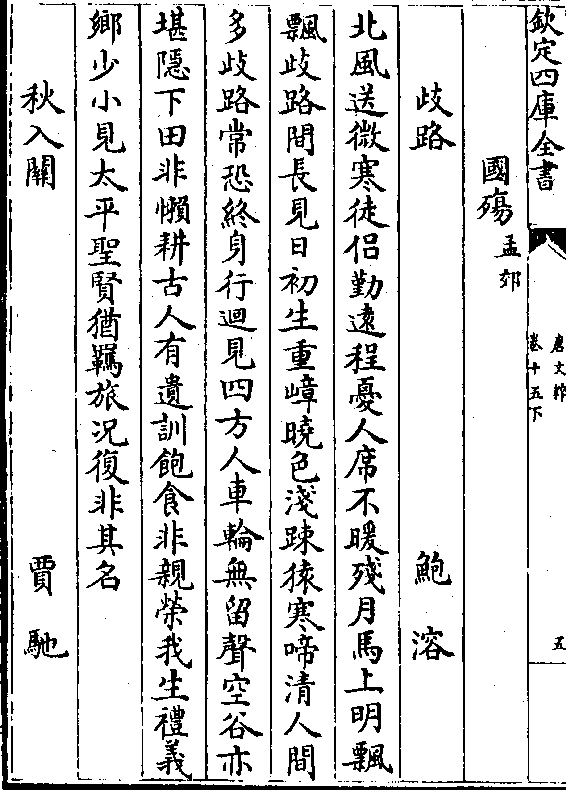 欽定四庫全書
唐文粹
卷十五下
五
國殤孟郊
歧路 鮑溶
北風送微寒徒侶勤遠程憂人席不暖殘月馬上明飄
飄歧路間長見日初生重嶂曉色淺踈猿寒啼清人間
多歧路常恐終身行迴見四方人車輪無留聲空谷亦
堪隱下田非懶耕古人有遺訓飽食非親榮我生禮義
鄉少小見太平聖賢猶羈旅况復非其名
秋入關 賈馳